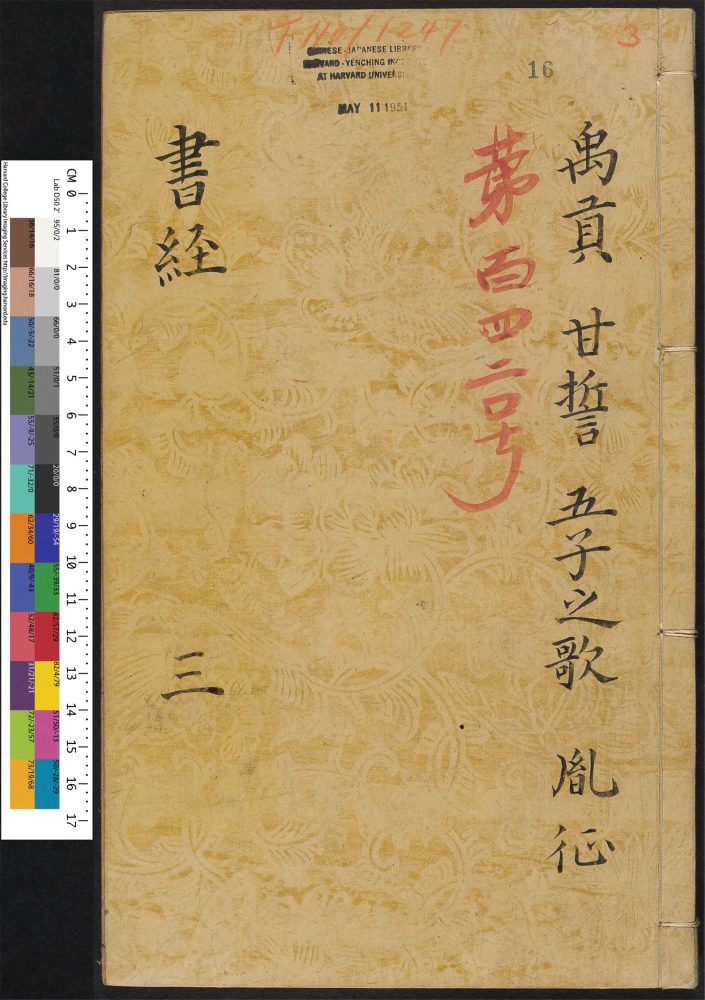 3
CHINESE-JAPANESE LIBRARY
HARVARD-YENCHING
AT HARVARD
MAY 11 1951
16
禹貢 甘誓 五子之歌 胤征
苐百四二号
書経 三
CM 0 1 2 3 4 5 6 7 8 9 10 11 12 13 14 15 16 17
Lab D50 2°
95/0/2 81/0/0 66/0/0 51/0/1 35/0/0 20/0/0 29/19/-54 55/-39/33 42/57/29 82/4/79 51/50/-13 50/-28/-29
66/16/18 50/-5/-22 43/-14/21 55/-9/-25 71/-32/0 62/34/60 40/9/-43 52/48/17 31/21/-21 72/-23/57 73/19/68
Harvard College Library Imaging Services http://imaging.harvard.edu